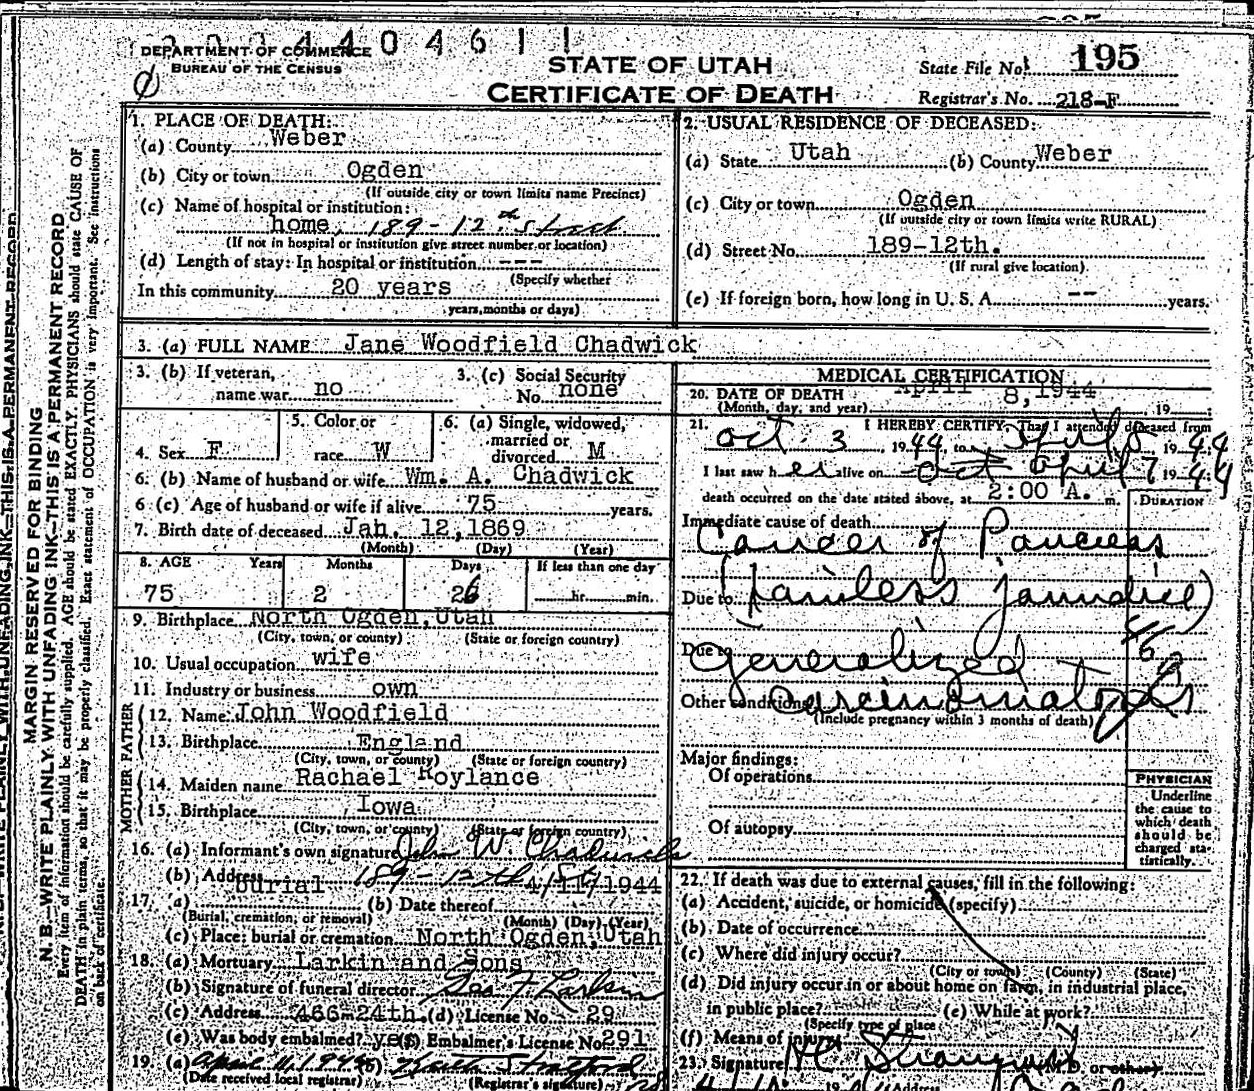 DEPARTMENT OF COMMERCE
BUREAU OF THE CENSUS
STATE OF UTAH
CERTIFICATE OF DEATH
State File No. 195
Registrar's No. 218-F
MARGIN RESERVED FOR BINDING
N. B.—WRITE PLAINLY WITH UNFADING INK—THIS IS A PERMANENT RECORD
Every item of information should be carefully supplied. AGE should be stated EXACTLY. PHYSICIANS should state CAUSE OF
DEATH in plain terms, so that it may be properly classified. Exact statement of OCCUPATION is very important. See instructions
on back of certificate.
1. PLACE OF DEATH:
(a) County Weber
(b) City or town Ogden
(If outside city or town limits name Precinct)
(c) Name of hospital or institution:
home, 189-12th street
(If not in hospital or institution give street number or location)
(d) Length of stay: In hospital or institution ---
(Specify whether
In this community 20 years
years, months or days)
2. USUAL RESIDENCE OF DECEASED:
(a) State Utah (b) County Weber
(c) City or town Ogden
(If outside city or town limits write RURAL)
(d) Street No. 189-12th.
(If rural give location)
(e) If foreign born, how long in U. S. A. -- years.
3. (a) FULL NAME Jane Woodfield Chadwick
3. (b) If veteran,
name war no
3. (c) Social Security
No. none
4. Sex F
5. Color or
race W
6. (a) Single, widowed,
married or
divorced M
6. (b) Name of husband or wife Wm. A. Chadwick
6 (c) Age of husband or wife if alive 75 years.
7. Birth date of deceased Jan. 12,1869
(Month) (Day) (Year)
8. AGE Years Months Days If less than one day
75 2 26 hr. min.
9. Birthplace North Ogden,Utah
(City, town, or county) (State or foreign country)
10. Usual occupation wife
11. Industry or business own
FATHER
12. Name John Woodfield
13. Birthplace England
(City, town, or county) (State or foreign country)
MOTHER
14. Maiden name Rachael Roylance
15. Birthplace Iowa
(City, town, or county) (State or foreign country)
16. (a) Informant's own signature John W. Chadwick
(b) Address 189-12th St
17. (a) burial (b) Date thereof 4/11/1944
(Burial, cremation, or removal) (Month) (Day) (Year)
(c) Place: burial or cremation North Ogden,Utah
18. (a) Mortuary Larkin and Sons
(b) Signature of funeral director Geo F Larkin
(c) Address 466-24th. (d) License No. 29
(e) Was body embalmed? yes (f) Embalmer's License No. 291
19. (a) April 11, 1944 (b)
(Date received local registrar) (Registrar's signature)
MEDICAL CERTIFICATION
20. DATE OF DEATH April 8,1944
(Month, day, and year) 19
21. I HEREBY CERTIFY, That I attended deceased from
Oct 3 1944, to April 8 1944
I last saw her alive on Oct April 7 1944
death occurred on the date stated above, at 2:00 A. m.
DURATION
Immediate cause of death
Cancer of Pancreas
Due to (painless jaundice)
Due to
generalized
Other conditions carcinomatosis
(Include pregnancy within 3 months of death)
Major findings:
Of operations
Of autopsy
PHYSICIAN
Underline
the cause to
which death
should be
charged sta-
tistically.
22. If death was due to external causes, fill in the following:
(a) Accident, suicide, or homicide (specify)
(b) Date of occurrence
(c) Where did injury occur?
(City or town) (County) (State)
(d) Did injury occur in or about home on farm, in industrial place,
in public place? (e) While at work?
(Specify type of place)
(f) Means of injury
23. Signature (M.D. or other)